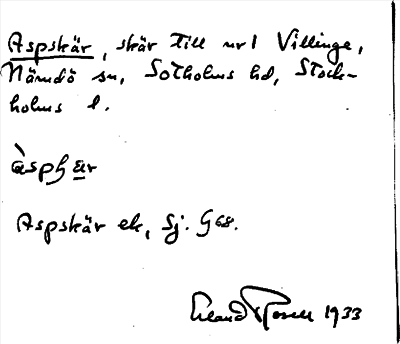 Aspskär, skär till nr 1 Villinge,
Nämdö sn, Sotholms hd, Stock-
holms l.
àspʃ̣ar
Aspskär ek, Sj. G 68.
Erland Rosell 1933